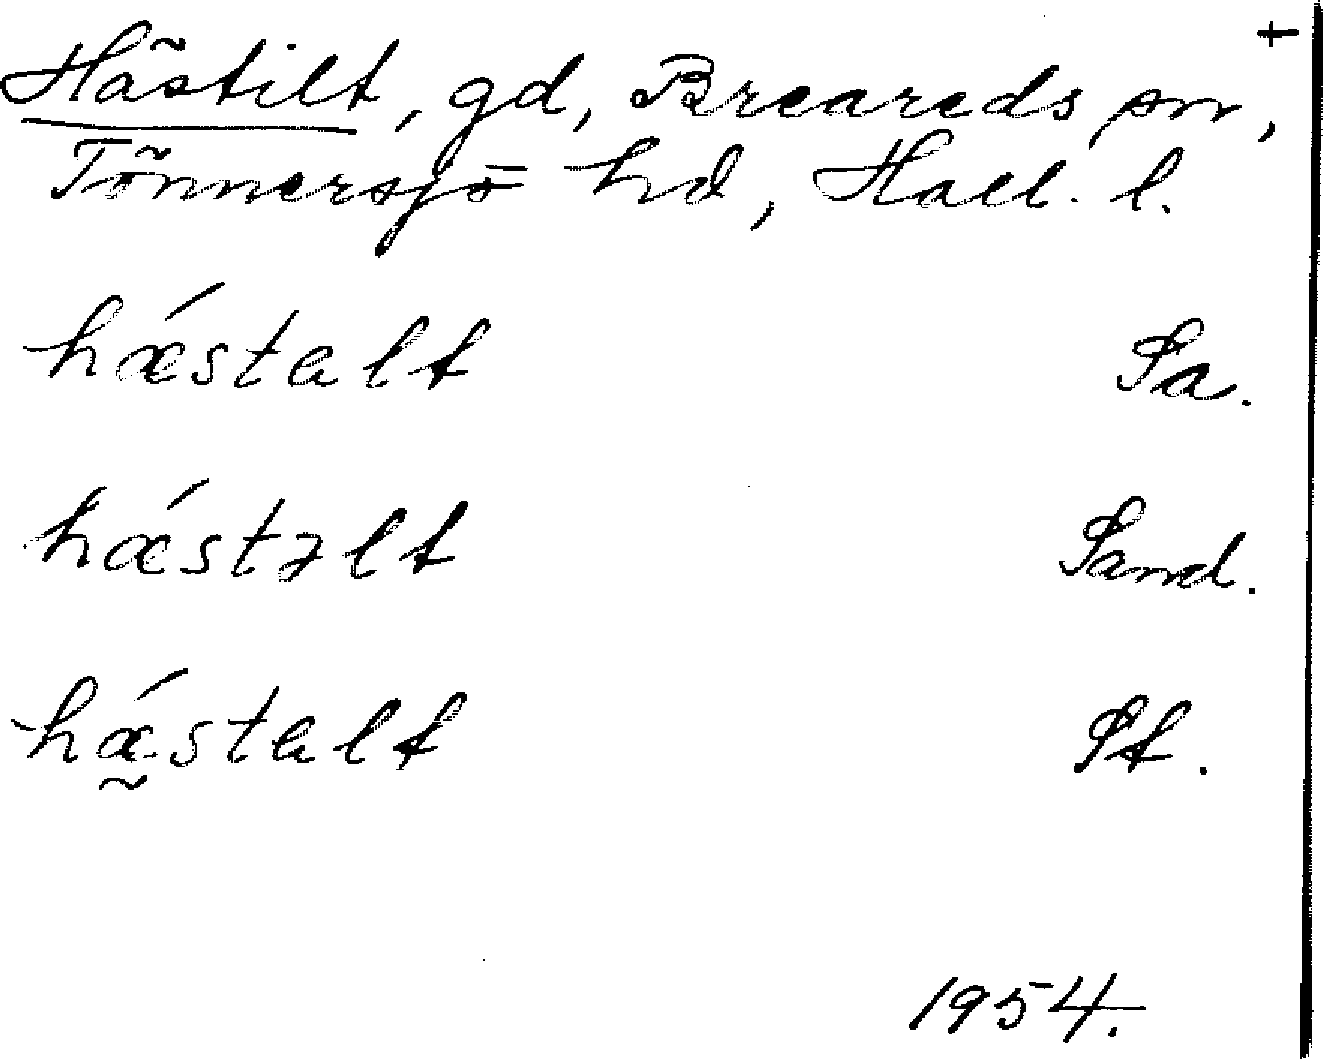 +
Hästilt, gd, Breareds sn,
Tönnersjö hd, Hall. l.
hǽstalt Sa.
hǽstəlt Sand.
hǽ̰stalt St.
1954.